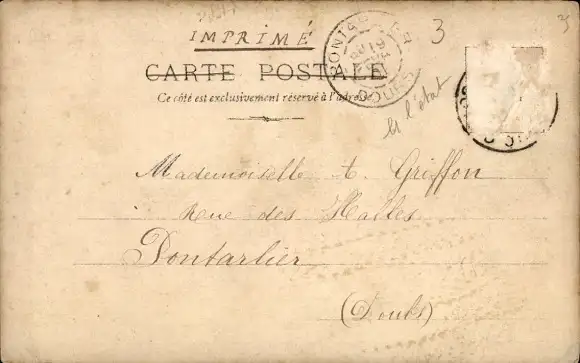 IMPRIMÉ
3
3
CARTE POSTALE
Ce côté est exclusivement réservé à l'adresse
PONTARLIER
DOUBS
Mademoiselle A. Griffon
Rue des Halles
Pontarlier
(Doubs)